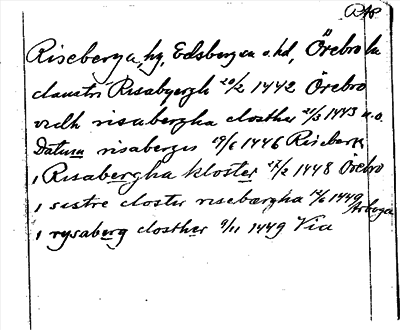 DAp.
Riseberga, hg, Edsbergs sn o. hd, Örebro län
claustri Risabyergh 20/2 1442 Örebro
vidh risabergha closther 21/3 1443 u.o.
Datum risabergis 29/6 1446 Riseberga
i Risabergha kloster 27/2 1448 Örebro
i systre closter risebærgha 12/6 1449 Arboga
i rysaberg closther 9/11 1449 Via